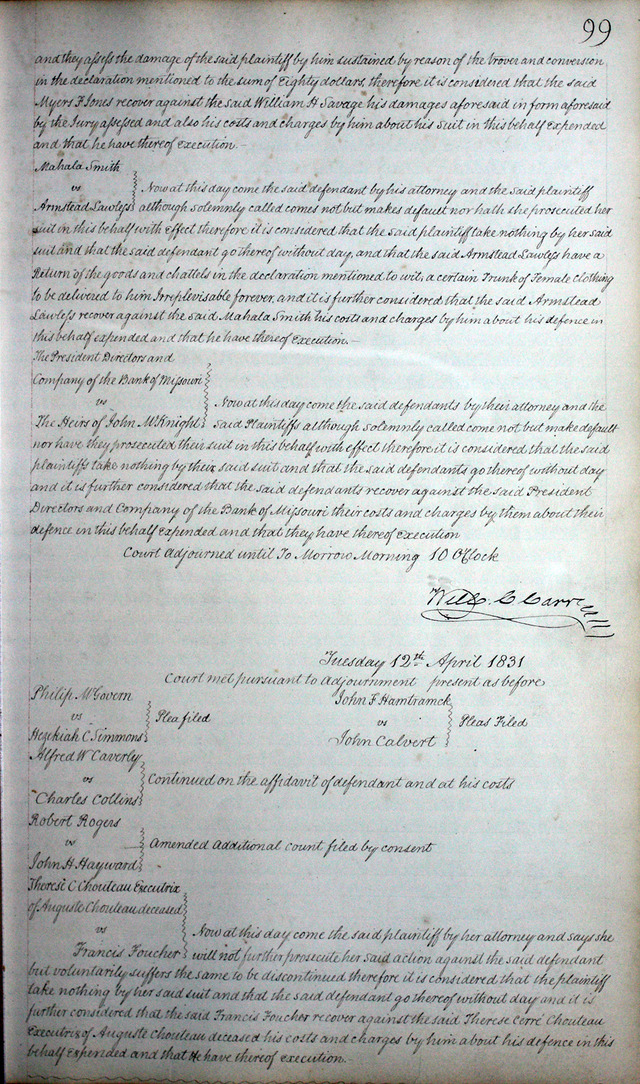 99
and they assess the damage of the said plaintiff by him sustained by reason of the trover and conversion
in the declaration mentioned to the sum of Eighty dollars, therefore it is considered that the said
Myers F Jones recover against the said William H Savage his damages aforesaid in form aforesaid
by the Jury assessed and also his costs and charges by him about his Suit in this behalf Expended
and that he have thereof Execution.—
Mahala Smith
vs
Now at this day come the said defendant by his attorney and the said plaintiff
Armstead Lawless although solemnly called comes not but makes default nor hath she prosecuted her
suit in this behalf with effect therefore it is considered that the said plaintiff take nothing by her said
suit and that the said defendant go thereof without day, and that the said Armstead Lawless have a
Return of the goods and chattels in the declaration mentioned to wit, a certain Trunk of Female clothing
to be delivered to him Irreplevisable forever, and it is further considered that the said Armstead
Lawless recover against the said Mahala Smith his costs and charges by him about his defence in
this behalf expended and that he have thereof Execution.—
The President Directors and
Company of the Bank of Missouri
vs
Now at this day come the said defendants by their attorney and the
The Heirs of John McKnight Said Plaintiffs although solemnly called come not but make default
nor have they prosecuted their suit in this behalf with effect therefore it is considered that the said
plaintiffs take nothing by their said suit and that the said defendants go thereof without day
and it is further considered that the said defendants recover against the said President
Directors and Company of the Bank of Missouri their costs and charges by them about their
defence in this behalf Expended and that they have thereof Execution
Court adjourned until To Morrow Morning 10 OClock
Will. C Carr
Tuesday 12th April 1831
Court met pursuant to adjournment present as before
Philip McGovern
vs
Plea filed
Hezekiah C Simmons
John F Hamtramck
vs
Pleas Filed
John Calvert
Alfred W Caverly
vs
Continued on the affidavit of defendant and at his costs
Charles Collins
Robert Rogers
vs
Amended Additional count filed by consent
John H Hayward
Therese C Chouteau Executrix
of Auguste Chouteau deceased
vs
Now at this day come the said plaintiff by her attorney and says she
Francis Foucher will not further prosecute her said action against the said defendant
but voluntarily suffers the same to be discontinued therefore it is considered that the plaintiff
take nothing by her said suit and that the said defendant go thereof without day and it is
further considered that the said Francis Foucher recover against the said Therese Cerré Chouteau
Executrix of Auguste Chouteau deceased his costs and charges by him about his defence in this
behalf Expended and that He have thereof execution.—